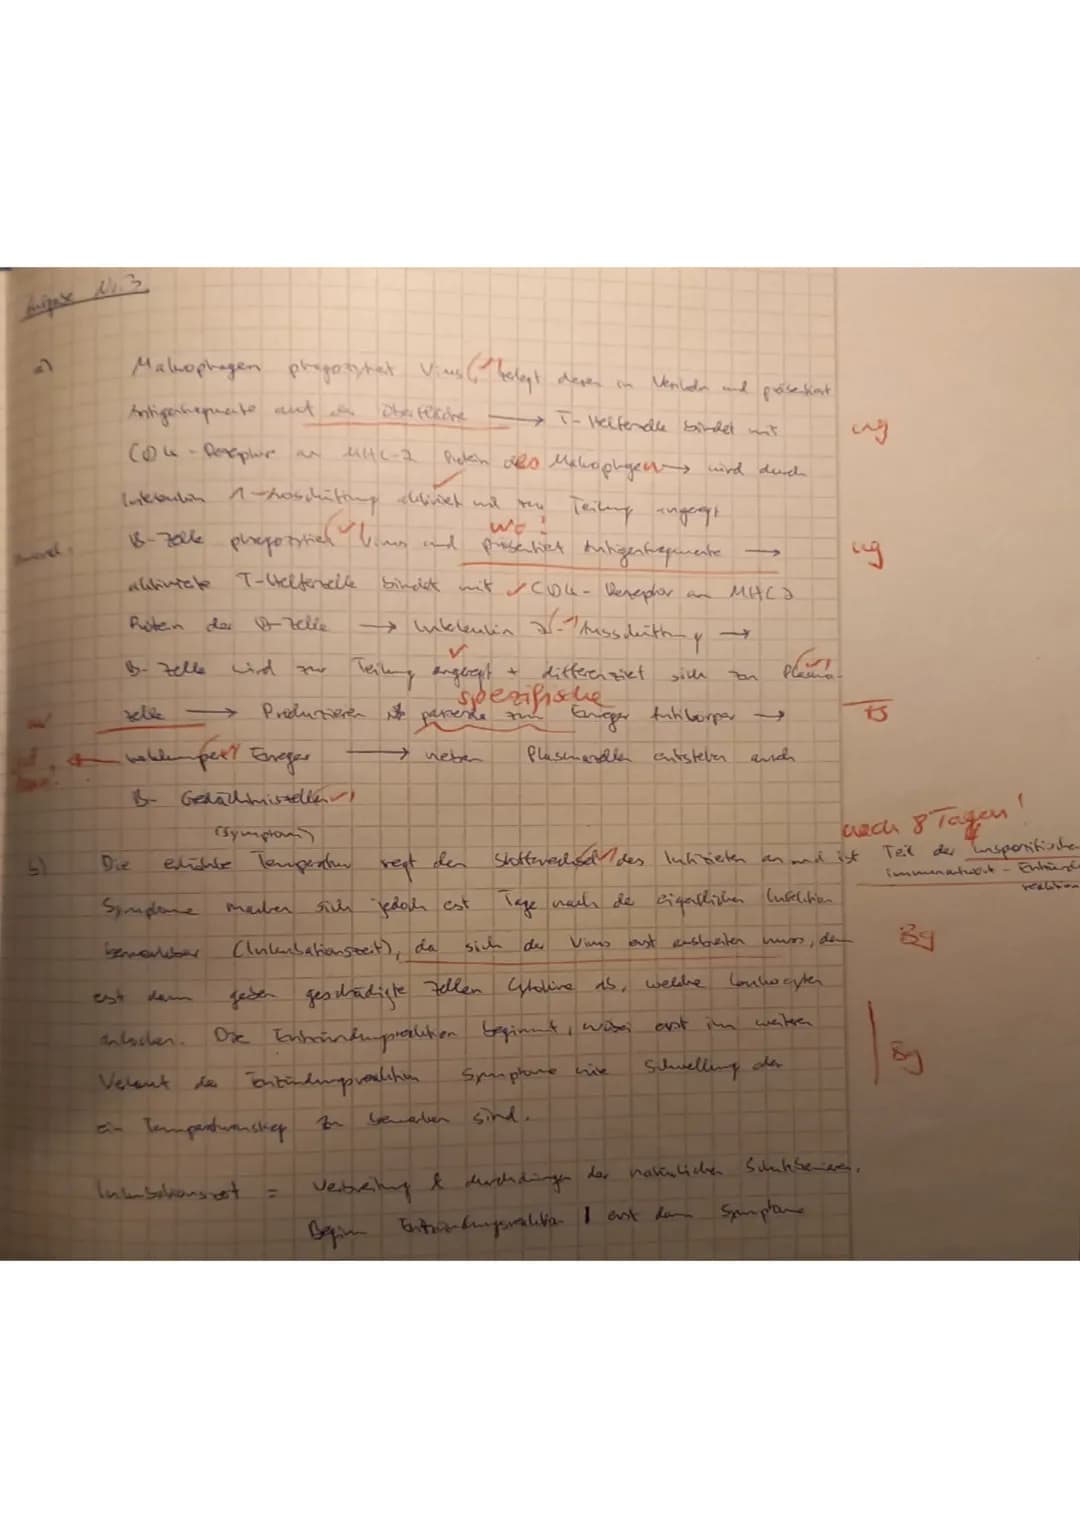 Aufgabe Nr. 3
a) Makrophagen phagozytiert Virus, zerlegt deren in Vesikeln und präsentiert
Antigenfragmente auf der Oberfläche → T-Helferzelle bindet mit ug
CD4-Rezeptor an MHC-2 Protein des Makrophagen → wird durch
Interleukin 1-Ausschüttung aktiviert und zur Teilung angeregt
wo!
B-Zelle phagozytiert Virus und präsentiert Antigenfragmente → ug
aktivierte T-Helferzelle bindet mit CD4-Rezeptor an MHC2
Protein der B-Zelle → Interleukin 2-Ausschüttung →
B-Zelle wird zur Teilung angeregt + differenziert sich zu Plasma-
spezifische
zelle → Produzieren passende zum Erreger Antikörper → TS
verklumpen Erreger → neben Plasmazellen entstehen auch
B-Gedächtniszellen
(Symptom) nach 8 Tagen!
b) Die erhöhte Temperatur regt den Stoffwechsel des Infizierten an und ist Teil der unspezifischen
Immunantwort - Entzünd
reaktion
Symptome machen sich jedoch erst Tage nach der eigentlichen Infektion
bemerkbar (Inkubationszeit), da sich der Virus erst ausbreiten muss, denn Bg
erst dann geben geschädigte Zellen Cytokine ab, welche Leukocyten
anlocken. Die Entzündungsreaktion beginnt, wobei erst im weiteren
Verlauf der Entzündungsreaktion Symptome wie Schwellung oder Bg
ein Temperaturanstieg zu bemerken sind.
Inkubationszeit = Verbreitung & durchdringen der natürlichen Schutzbarrieren.
Beginn Entzündungsreaktion | erst dann Symptome